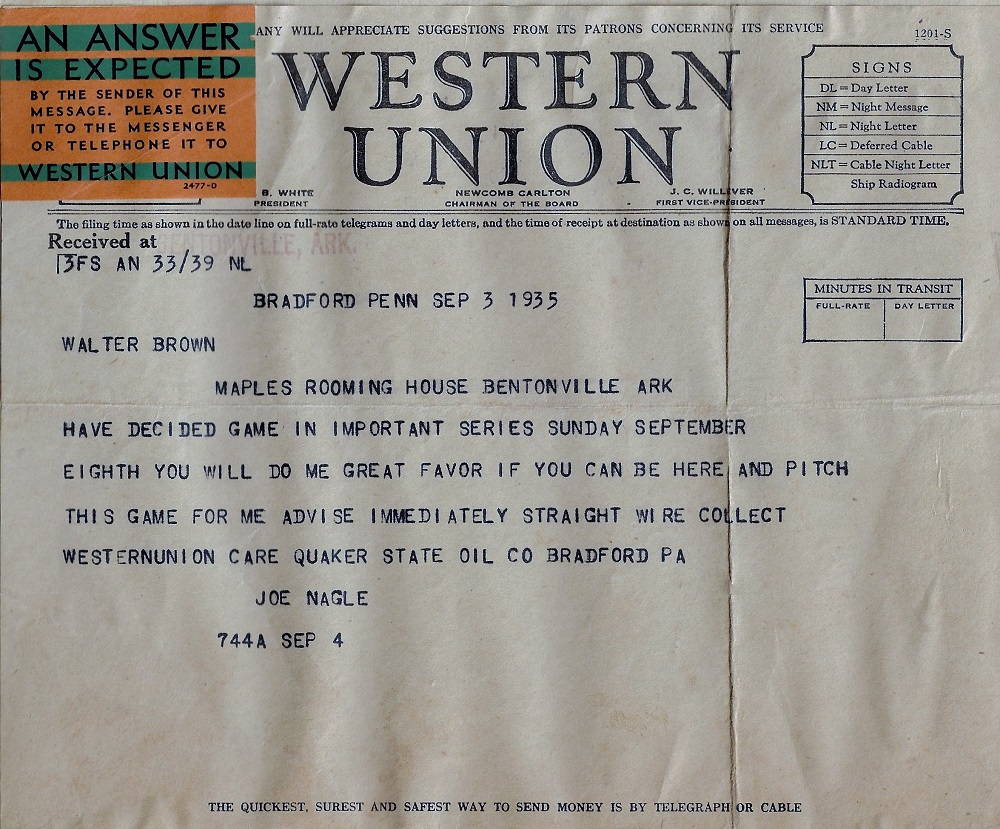 AN ANSWER
IS EXPECTED
BY THE SENDER OF THIS
MESSAGE. PLEASE GIVE
IT TO THE MESSENGER
OR TELEPHONE IT TO
WESTERN UNION
2477-D
ANY WILL APPRECIATE SUGGESTIONS FROM ITS PATRONS CONCERNING ITS SERVICE
1201-S
WESTERN
UNION
SIGNS
DL = Day Letter
NM = Night Message
NL = Night Letter
LC = Deferred Cable
NLT = Cable Night Letter
Ship Radiogram
B. WHITE
PRESIDENT
NEWCOMB CARLTON
CHAIRMAN OF THE BOARD
J. C. WILLEVER
FIRST VICE-PRESIDENT
The filing time as shown in the date line on full-rate telegrams and day letters, and the time of receipt at destination as shown on all messages, is STANDARD TIME.
Received at BENTONVILLE, ARK.
13FS AN 33/39 NL
BRADFORD PENN SEP 3 1935
MINUTES IN TRANSIT
FULL-RATE DAY LETTER
WALTER BROWN
MAPLES ROOMING HOUSE BENTONVILLE ARK
HAVE DECIDED GAME IN IMPORTANT SERIES SUNDAY SEPTEMBER
EIGHTH YOU WILL DO ME GREAT FAVOR IF YOU CAN BE HERE AND PITCH
THIS GAME FOR ME ADVISE IMMEDIATELY STRAIGHT WIRE COLLECT
WESTERNUNION CARE QUAKER STATE OIL CO BRADFORD PA
JOE NAGLE
744A SEP 4
THE QUICKEST, SUREST AND SAFEST WAY TO SEND MONEY IS BY TELEGRAPH OR CABLE